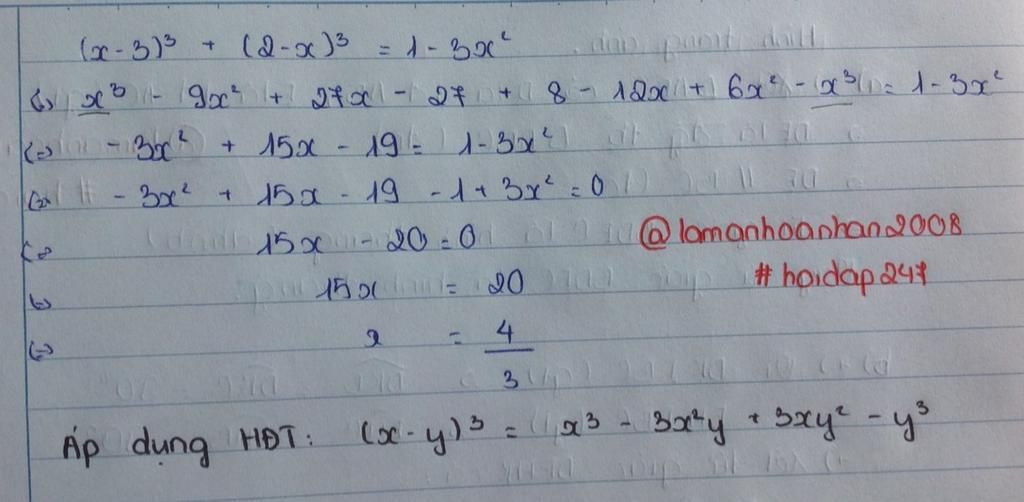 (x-3)³ + (2-x)³ = 1 - 3x²
(=) x³ - 9x² + 27x - 27 + 8 - 12x + 6x² - x³ = 1 - 3x²
(=) - 3x² + 15x - 19 = 1 - 3x²
(=) - 3x² + 15x - 19 - 1 + 3x² = 0
(=) 15x - 20 = 0
@lamanhoanhan2008
(=) 15x = 20
#hoidap247
(=) x = 4/3
Áp dụng HĐT: (x-y)³ = x³ - 3x²y + 3xy² - y³